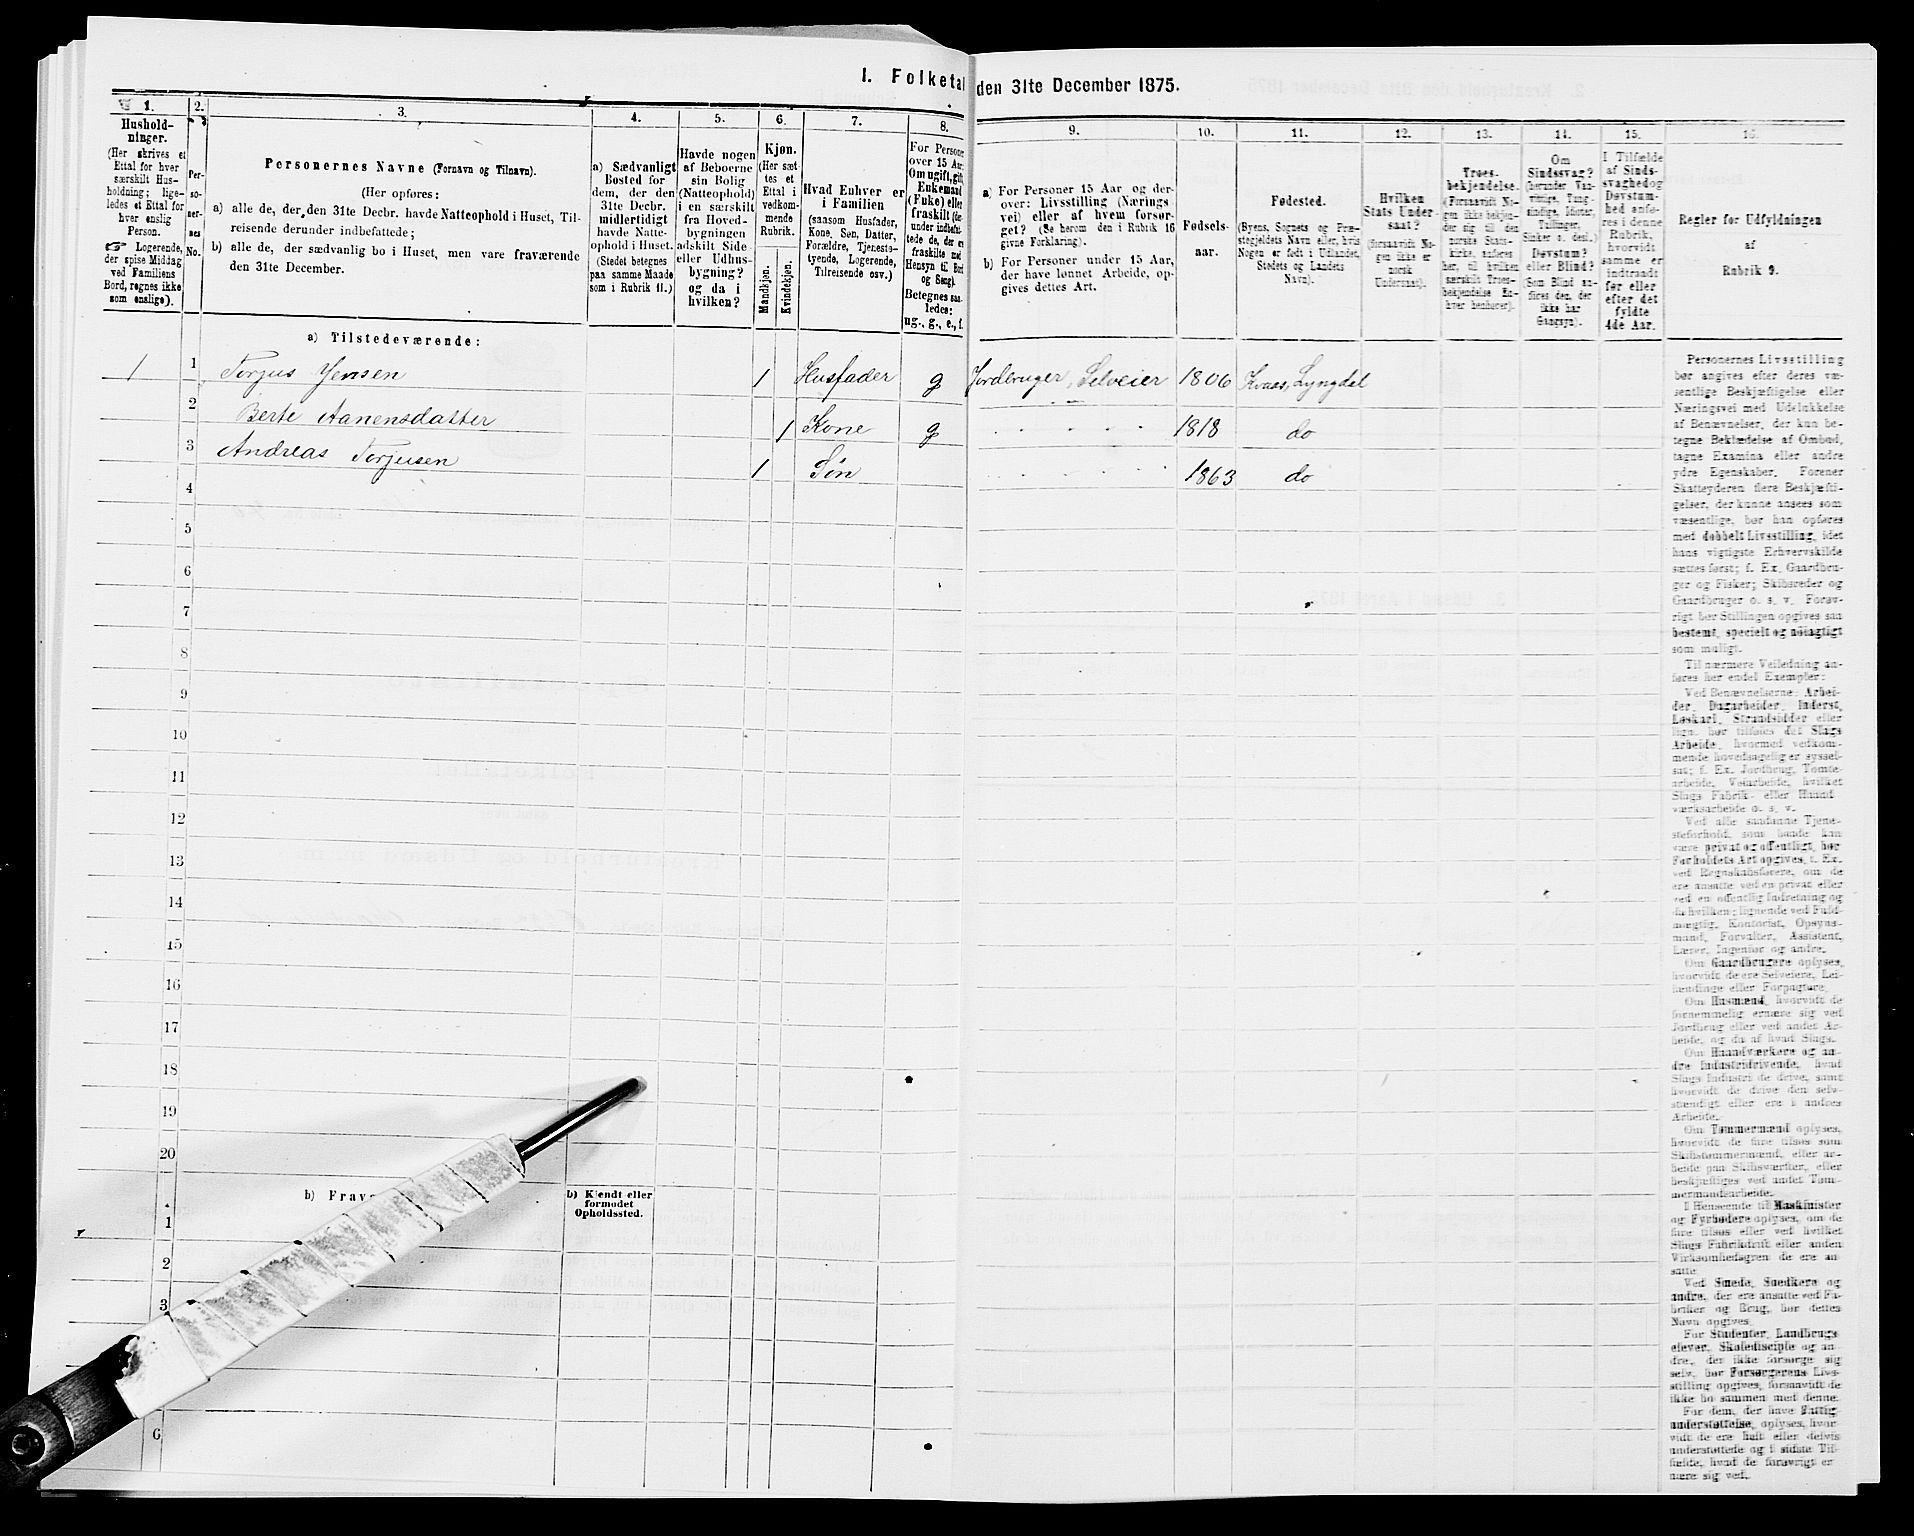 I. Folketal den 31te December 1875.
1.
Hushold-
ninger.
(Her skrives et
Ettal for hver
særskilt Hus-
holdning; lige-
ledes et Ettal for
hver enslig
Person.
☞ Logerende,
der spise Middag
ved Familiens
Bord, regnes ikke
som enslige).
2.
Per-
so-
ner-
nes
No.
3.
Personernes Navne (Fornavn og Tilnavn).
(Her opføres:
a) alle de, der den 31te Decbr. havde Natteophold i Huset, Til-
reisende derunder indbefattede;
b) alle de, der sædvanlig bo i Huset, men vare fraværende
den 31te December.
4.
a) Sædvanligt
Bosted for
dem, der den
31te Decbr.
midlertidigt
havde Natte-
ophold i Huset.
(Stedet betegnes
paa samme Maade
som i Rubrik 11.)
5.
Havde nogen
af Beboerne
sin Bolig
(Natteophold)
i en særskilt
fra Hoved-
bygningen
adskilt Side-
eller Udhus-
bygning?
og da i
hvilken?
6.
Kjøn.
(Her sæt-
tes et
Ettal i
vedkom-
mende
Rubrik.
Mandkjøn.
Kvindekjøn.
7.
Hvad Enhver er
i Familien
(saasom Husfader,
Kone, Søn, Datter,
Forældre, Tjeneste-
tyende, Logerende,
Tilreisende osv.)
8.
For Personer
over 15 Aar:
Om ugift, gift,
Enkemand
(Enke) eller
fraskilt
Betegnes saa-
ledes:
ug., g., e., f.
9.
a) For Personer 15 Aar og der-
over: Livsstilling (Nærings-
vei) eller af hvem forsør-
get? (Se herom den i Rubrik 16
givne Forklaring).
b) For Personer under 15 Aar,
der have lønnet Arbeide, op-
gives dettes Art.
10.
Fødsels-
aar.
11.
Fødested.
(Byens, Sognets og Præ-
stegjeldets Navn eller, hvis
Nogen er født i Udlandet,
Stedets og Landets
Navn).
12.
Hvilken
Stats Under-
saat?
(forsaavidt No-
gen ikke er
norsk
Undersaat).
13.
Troes-
bekjendelse.
(Forsaavidt No-
gen ikke bekjen-
der sig til den
norske Stats-
kirke, anføres
her, til hvilken
særskilt Troes-
bekjendelse En-
hver henhører).
14.
Om
Sindssvag?
(herunder Van-
vittige, Tung-
sindige, Idioter,
Tullinger,
Sinker o. desl.)
Døvstum?
eller Blind?
(Som Blind an-
føres den, der
ikke har
Gangsyn).
15.
I Tilfælde
af Sinds-
svaghed og
Døvstum-
hed anfø-
res i denne
Rubrik,
hvorvidt
samme er
indtraadt
før eller
efter det
fyldte
4de Aar.
16.
Regler for Udfyldningen
af
Rubrik 9.
a) Tilstedeværende:
1 1 Torjus Jensen 1 Husfader g Jordbruger, Selveier 1806 Kvaas, Lyngdal
2 Berte Aanensdatter 1 Kone g 1818 do
3 Andreas Torjusen 1 Søn 1863 do
4
5
6
7
8
9
10
11
12
13
14
15
16
17
18
19
20
b) Frav
b) Kjendt eller
formodet
Opholdssted.
1
2
3
6
Personernes Livsstilling
bør angives efter deres væ-
sentlige Beskjæftigelse eller
Næringsvei med Udelukkelse
af Benævnelser, der kun be-
tegne Beklædelse af Ombud,
tagne Examina eller andre
ydre Egenskaber. Forener
Skatteyderen flere Beskjæfti-
gelser, der kunne ansees som
væsentlige, bør han opføres
med dobbelt Livsstilling, idet
hans vigtigste Erhvervskilde
sættes først; f. Ex. Gaardbru-
ger og Fisker; Skibsreder og
Gaardbruger o. s. v. Forøv-
rigt bør Stillingen opgives saa
bestemt, specielt og nøiagtigt
som muligt.
Til nærmere Veiledning an-
føres her endel Exempler:
Ved Benævnelserne: Arbei-
der, Dagarbeider, Inderst,
Løskarl, Strandsidder eller
lign. bør tilføies det Slags
Arbeide, hvormed vedkom-
mende hovedsagelig er syssel-
sat; f. Ex. Jordbrug, Tomte-
arbeide, Veiarbeide, hvilket
Slags Fabrik- eller Haand-
værksarbeide o. s. v.
Ved alle saadanne Tjene-
steforhold, som baade kan
være privat og offentligt, bør
Forholdets Art opgives, f. Ex.
ved Regnskabsførere, om de
ere ansatte ved en privat eller
ved en offentlig Indretning og
da hvilken; lignende ved Fuld-
mægtig, Kontorist, Opsyns-
mand, Forvalter, Assistent,
Lærer, Ingeniør og andre.
Om Gaardbrugere oplyses,
hvorvidt de ere Selveiere, Lei-
lændinge eller Forpagtere.
Om Husmænd, hvorvidt de
fornemmelig ernære sig ved
Jordbrug eller ved andet Ar-
beide, og da af hvad Slags.
Om Haandværkere og an-
dre Industridrivende, hvad
Slags Industri de drive, samt
hvorvidt de drive den selv-
stændigt eller ere i andres
Arbeide.
Om Tømmermænd oplyses,
hvorvidt de fare tilsøs som
Skibstømmermænd, eller ar-
beide paa Skibsværfter, eller
beskjæftiges ved andet Tøm-
mermandsarbeide.
I Henseende til Maskinister
og Fyrbødere oplyses, om de
fare tilsøs eller ved hvilket
Slags Fabrikdrift eller anden
Virksomhedsgren de ere an-
satte.
Ved Smede, Snedkere og
andre, der ere ansatte ved Fa-
briker og Brug, bør dettes
Navn opgives.
For Studenter, Landbrugs-
elever, Skoledisciple og an-
dre, der ikke forsørge sig
selv, bør Forsørgerens Livs-
stilling opgives, forsaavidt de
ikke bo sammen med denne.
For dem, der have Fattig-
understøttelse, oplyses, hvor-
vidt de ere helt eller delvis
understøttede og i sidste Til-
fælde, hvad de forøvrigt er-
nære sig ved.